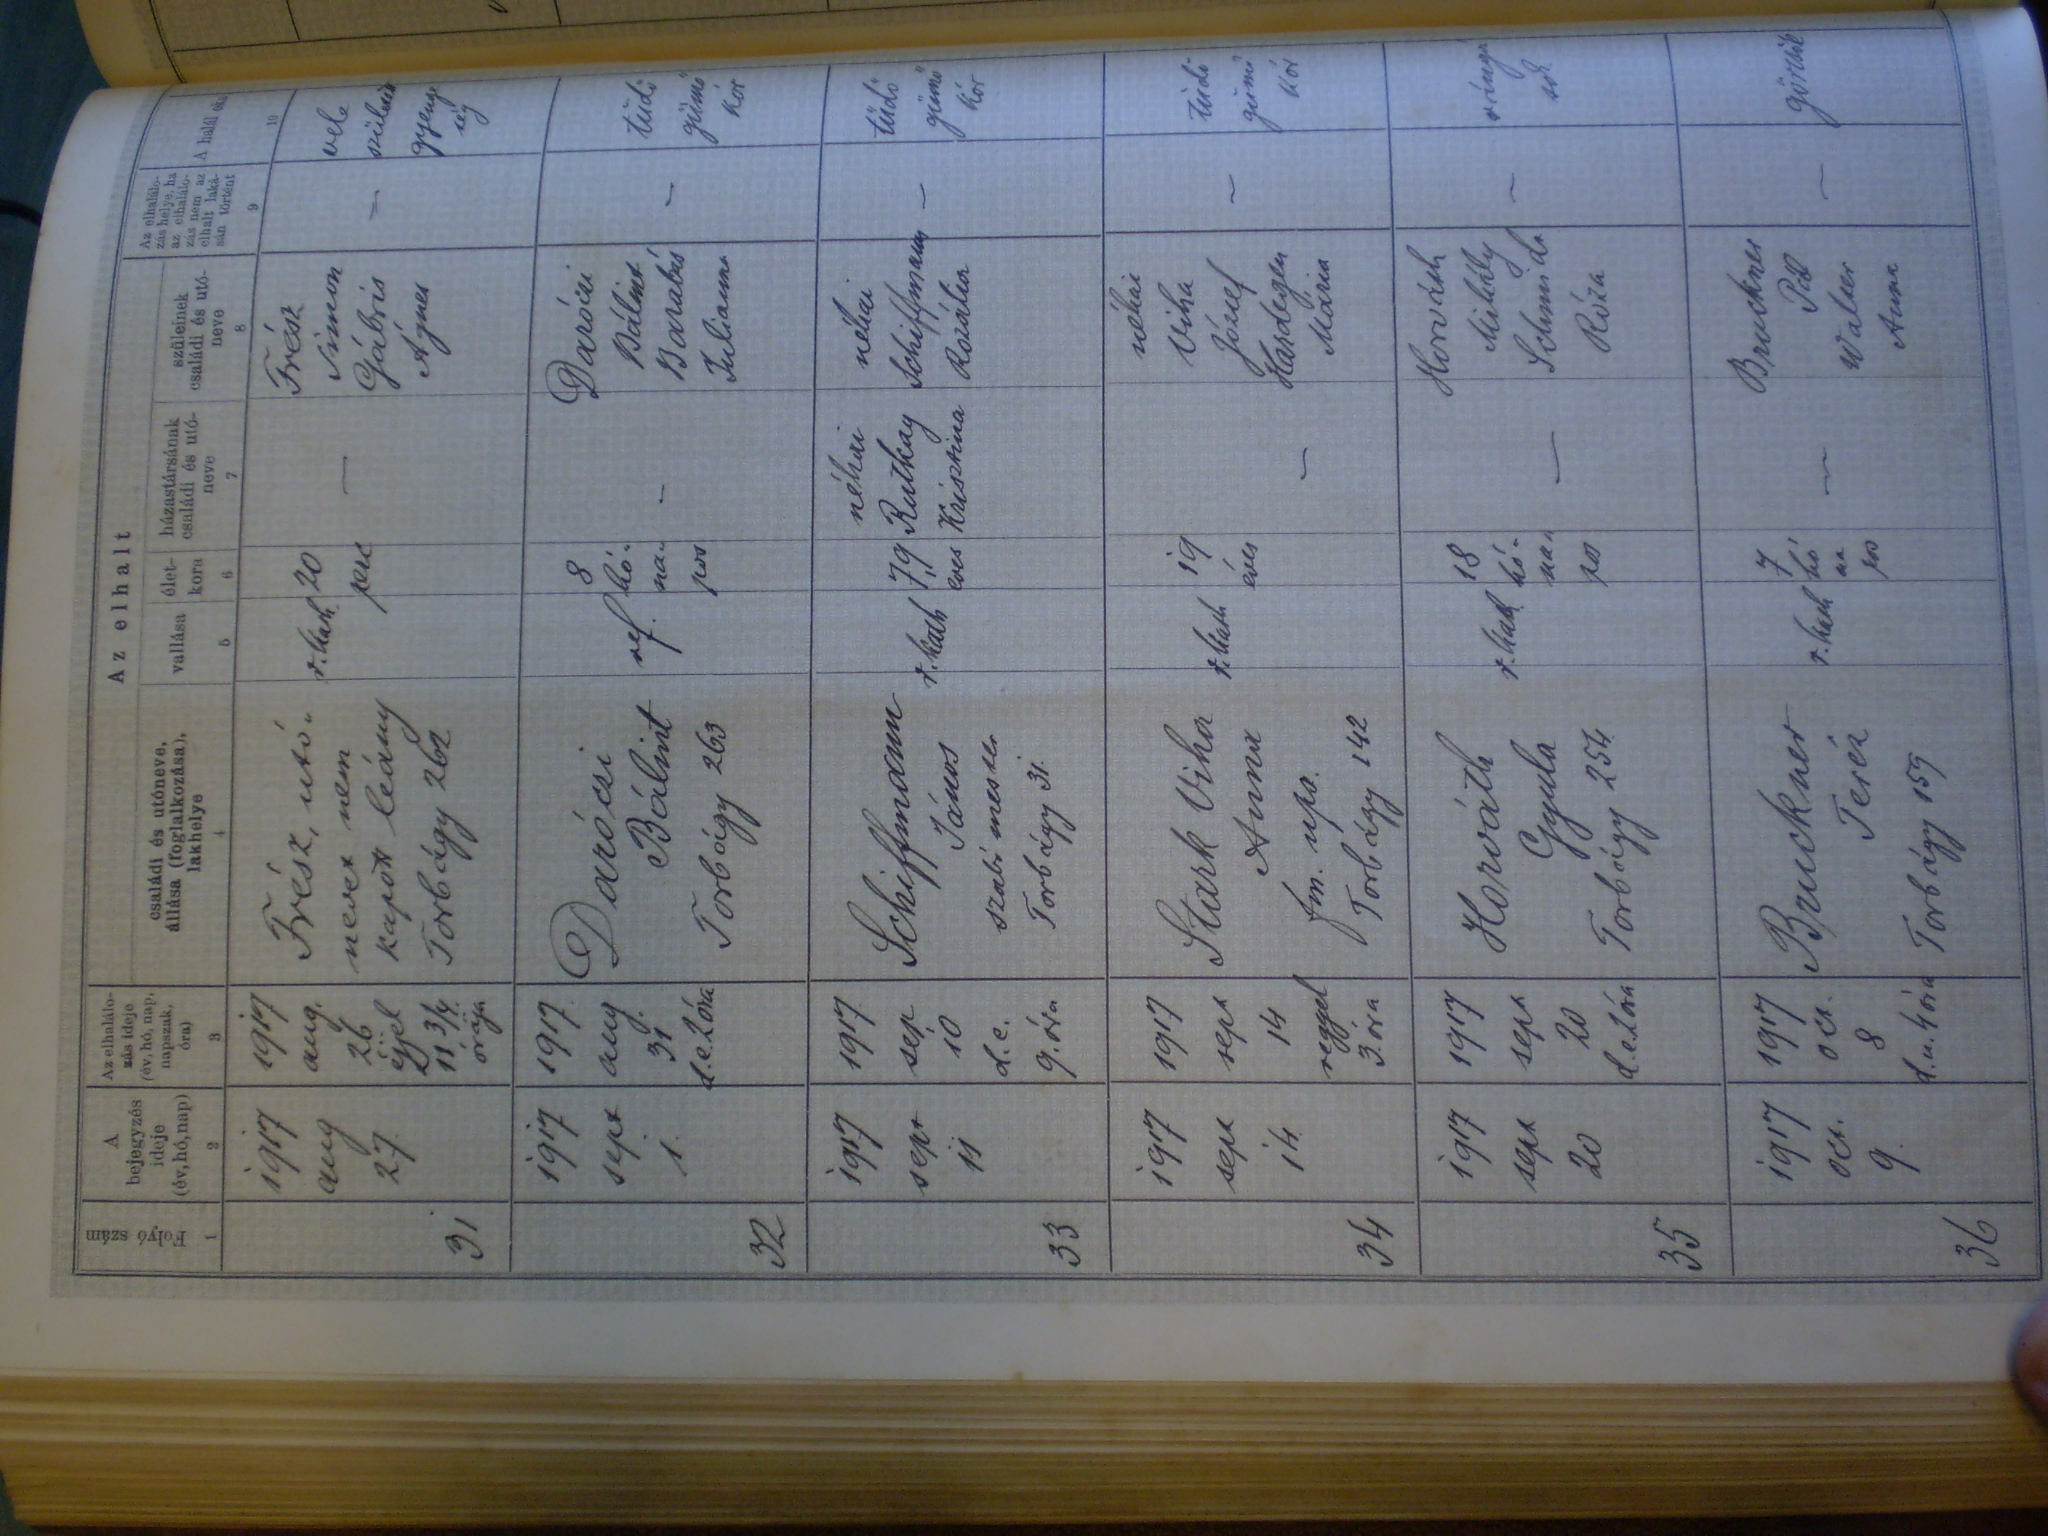 Folyó szám
A bejegyzés ideje (év, hó, nap)
Az elhalálozás ideje (év, hó, nap, napszak, óra)
Az elhalt
családi és utóneve, állása (foglalkozása), lakhelye
vallása
életkora
házastársának családi és utóneve
szüleinek családi és utóneve
Az elhalálozás helye, ha az elhalálozás nem az elhalt lakásán történt
A halál oka
1
2
3
4
5
6
7
8
9
10
31
1917
aug
27.
1917
aug.
26
éjjel
11 3/4
órája
Frész, utó-
nevet nem
kapott leány
Torbágy 262
r. kath
20
perc
—
Frész
Simon
Gábris
Ágnes
—
vele
született
gyenge
ség
32
1917
sept
1.
1917
aug.
31
d.e. 2 óra
Daróczi
Bálint
Torbágy 263
ref.
8
hó-
na-
pos
—
Daróczi
Bálint
Barabás
Julianna
—
tüdő
gümő
kór
33
1917
sept
11
1917
sep
10
d.e.
9. óra
Schiffmann
János
szabó mester
Torbágy 31.
r. kath
79
éves
néhai
Rutkay
Krisztina
néhai
Schiffmann
Rozália
—
tüdő
gümő
kór
34
1917
sept
14.
1917
sept
14
reggel
3. óra
Stark Viha
Anna
fm. nps.
Torbágy 142
r. kath
19
éves
—
néhai
Viha
József
Hardegen
Mária
—
tüdő
gümő
kór
35
1917
sept
20
1917
sept
20
d.e. 2 óra
Horváth
Gyula
Torbágy 254.
r. kath
18
hó-
na-
pos
—
Horváth
Mihály
Schmidt
Róza
—
36
1917
oct.
9.
1917
oct.
8
d.u. 4 óra
Bruckner
Teréz
Torbágy 159
r. kath
7
hó
na
pos
—
Bruckner
Pál
Walser
Anna
—
görcsök